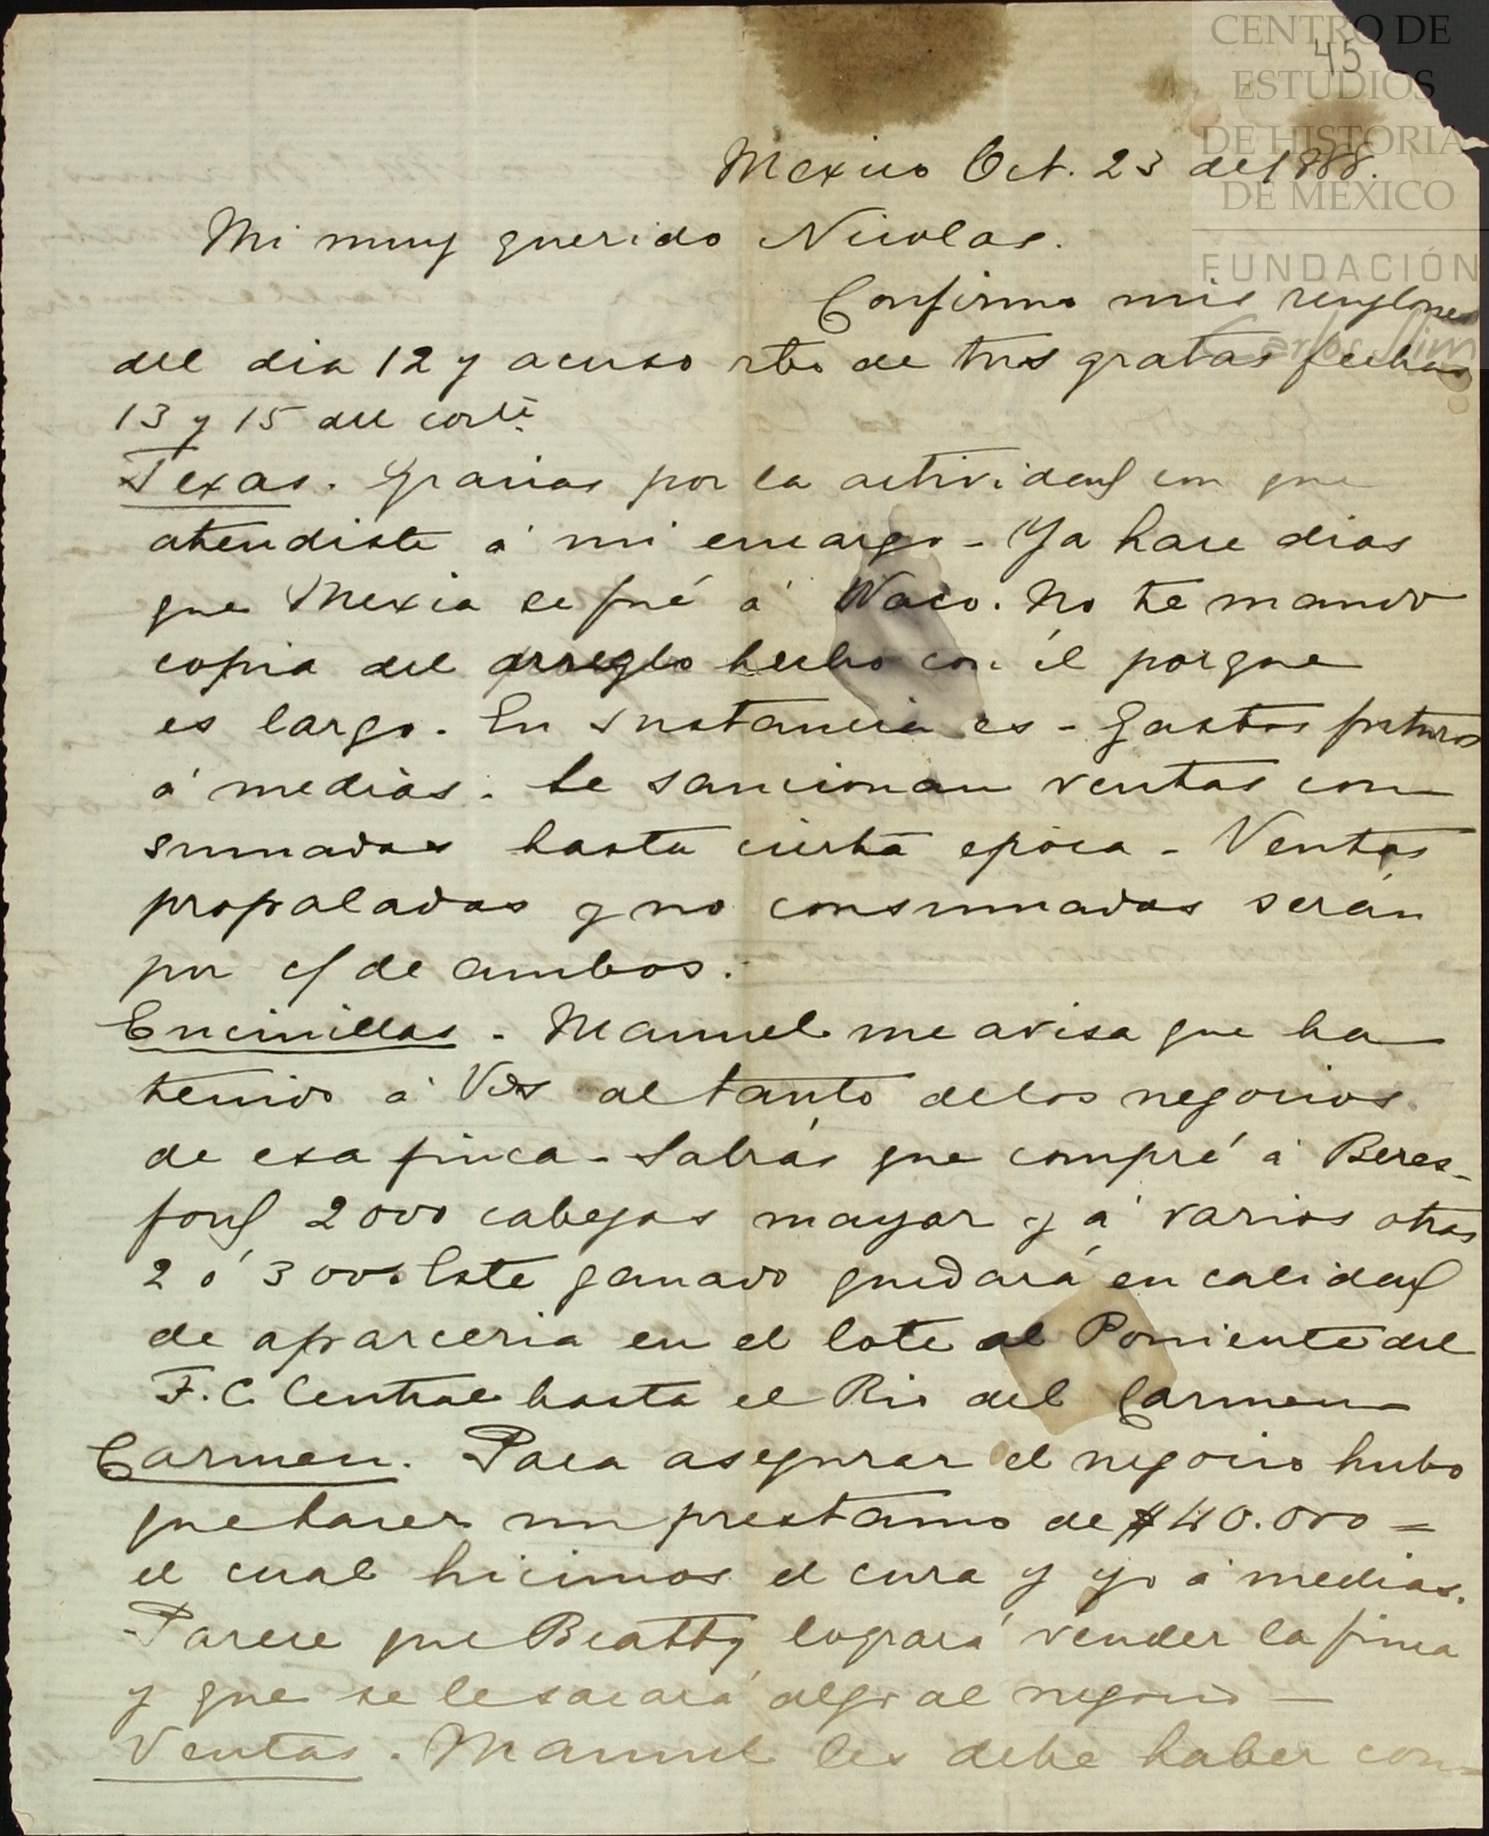 CENTRO DE
ESTUDIOS
DE HISTORIA
DE MÉXICO
FUNDACIÓN
Carlos Slim
45
Mexico Oct. 23 de 1888.
Mi muy querido Nicolas.
Confirmo mis renglones
del dia 12 y acuso rbo de tus gratas fechas
13 y 15 del corte.
Texas. Gracias por la actividad con que
atendiste á mi encargo - Ya hace dias
que Mexia se fué á Waco. No te mando
copia del arreglo hecho con él porque
es largo. En sustancia es - Gastos futuros
á medias. Se sancionan ventas con
sumadas hasta cierta epoca - Ventas
propaladas y no consumadas serán
por c/ de ambos.
Encinillas - Manuel me avisa que ha
tenido á Vds al tanto de los negocios
de esa finca - Sabrás que compré á Beres-
ford 2000 cabezas mayor y á varios otras
2 ó 3000. Este ganado quedará en calidad
de aparceria en el lote al Poniente del
F. C. Central hasta el Rio del Carmen -
Carmen. Para asegurar el negocio hubo
que hacer un prestamo de $40.000 =
el cual hicimos el cura y yo á medias.
Parece que Beatty logrará vender la finca
y que se le sacará algo al negocio -
Ventas. Manuel les debe haber con=